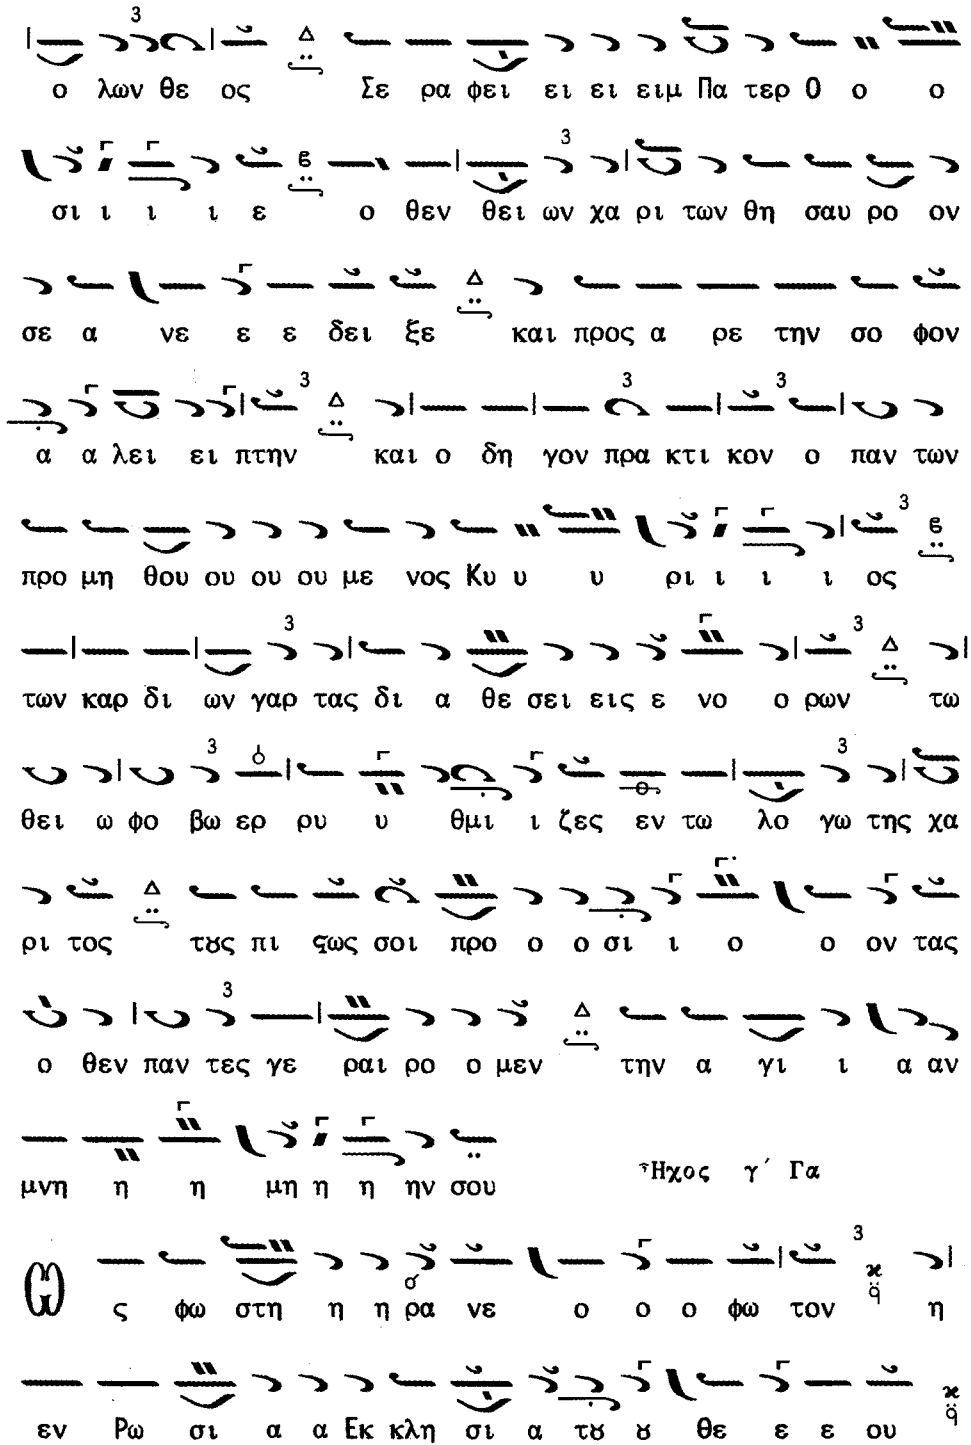 ο λων θε ος Σε ρα φει ει ει ειμ Πα τερ Ο ο ο
σι ι ι ι ε ο θεν θει ων χα ρι των θη σαυ ρο ον
σε α νε ε ε δει ξε και προς α ρε την σο φον
α α λει ει πτην και ο δη γον πρα κτι κον ο παν των
προ μη θου ου ου ου με νος Κυ υ υ ρι ι ι ι ος
των καρ δι ων γαρ τας δι α θε σει εις ε νο ο ρων τω
θει ω φο βω ερ ρυ υ θμι ι ζες εν τω λο γω της χα
ρι τος τȣς πι ϛως σοι προ ο ο σι ι ο ο ον τας
ο θεν παν τες γε ραι ρο ο μεν την α γι ι α αν
μνη η η μη η η ην σου
Ἦχος γ΄ Γα
Ω ς φω στη η η ρα νε ο ο ο φω τον η
εν Ρω σι α α Εκ κλη σι α τȣ ȣ θε ε ε ου